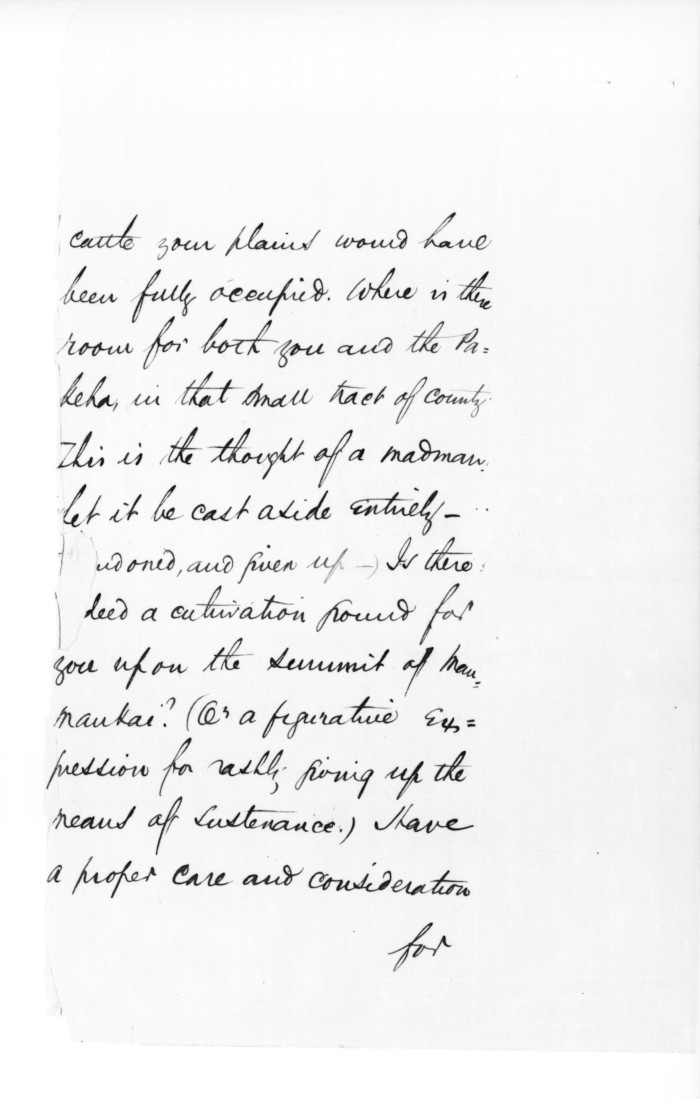 cattle your plains would have
been fully occupied. Where is there
room for both you and the Pa=
keha, in that small tract of country.
This is the thought of a madman.
let it be cast aside entirely —
doned, and given up —) Is there
deed a cultivation ground for
you upon the summit of Mau=
maukai? (Or a figurative Ex=
pression for rashly giving up the
means of sustenance.) Have
a proper care and consideration
for